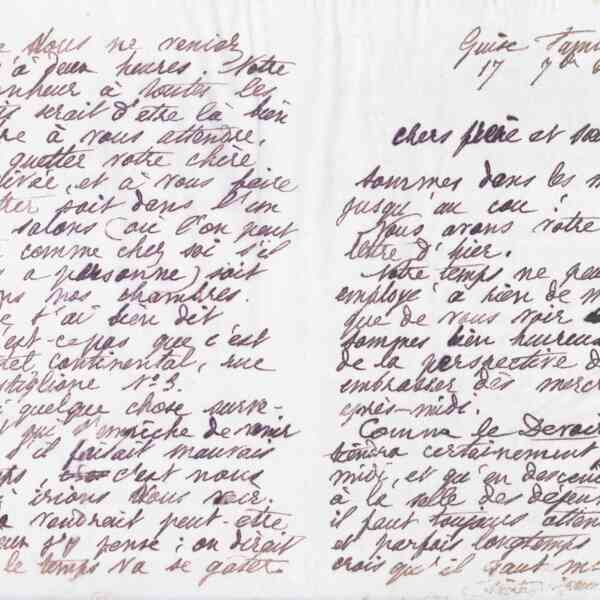 Vous ne veniez
'à deux heures. Notre
nheur à toutes les
serait d'être là bien
re à vous attendre,
guetter votre chère
ivée, et à vous faire
soit dans l'un
salons (où l'on peut
comme chez soi s'il
a personne) soit
ns nos chambres.
e t'ai bien dit
est-ce pas que c'est
continental, rue
stiglione No 3.
i quelque chose surve-
t qui t'empêche de venir
s'il faisait mauvais
ps, c'est nous
irions vous voir.
vaudrait peut-être
eux j'y pense ; on dirait
le temps va se gater.
Guise Fami
17 7bre
chers frère et soe
sommes dans les m
jusqu'au cou !
Nous avons votre
lettre d'hier.
Notre temps ne peu
employé à rien de m
que de vous voir
sommes bien heureux
de la perspective d
embrasser dès mercr
après-midi.
Comme le Devoir
tiendra certainement
midi, et qu'en descend
à la salle des dépen
il faut toujours atten
et parfois longtemps
crois qu'il vaut m